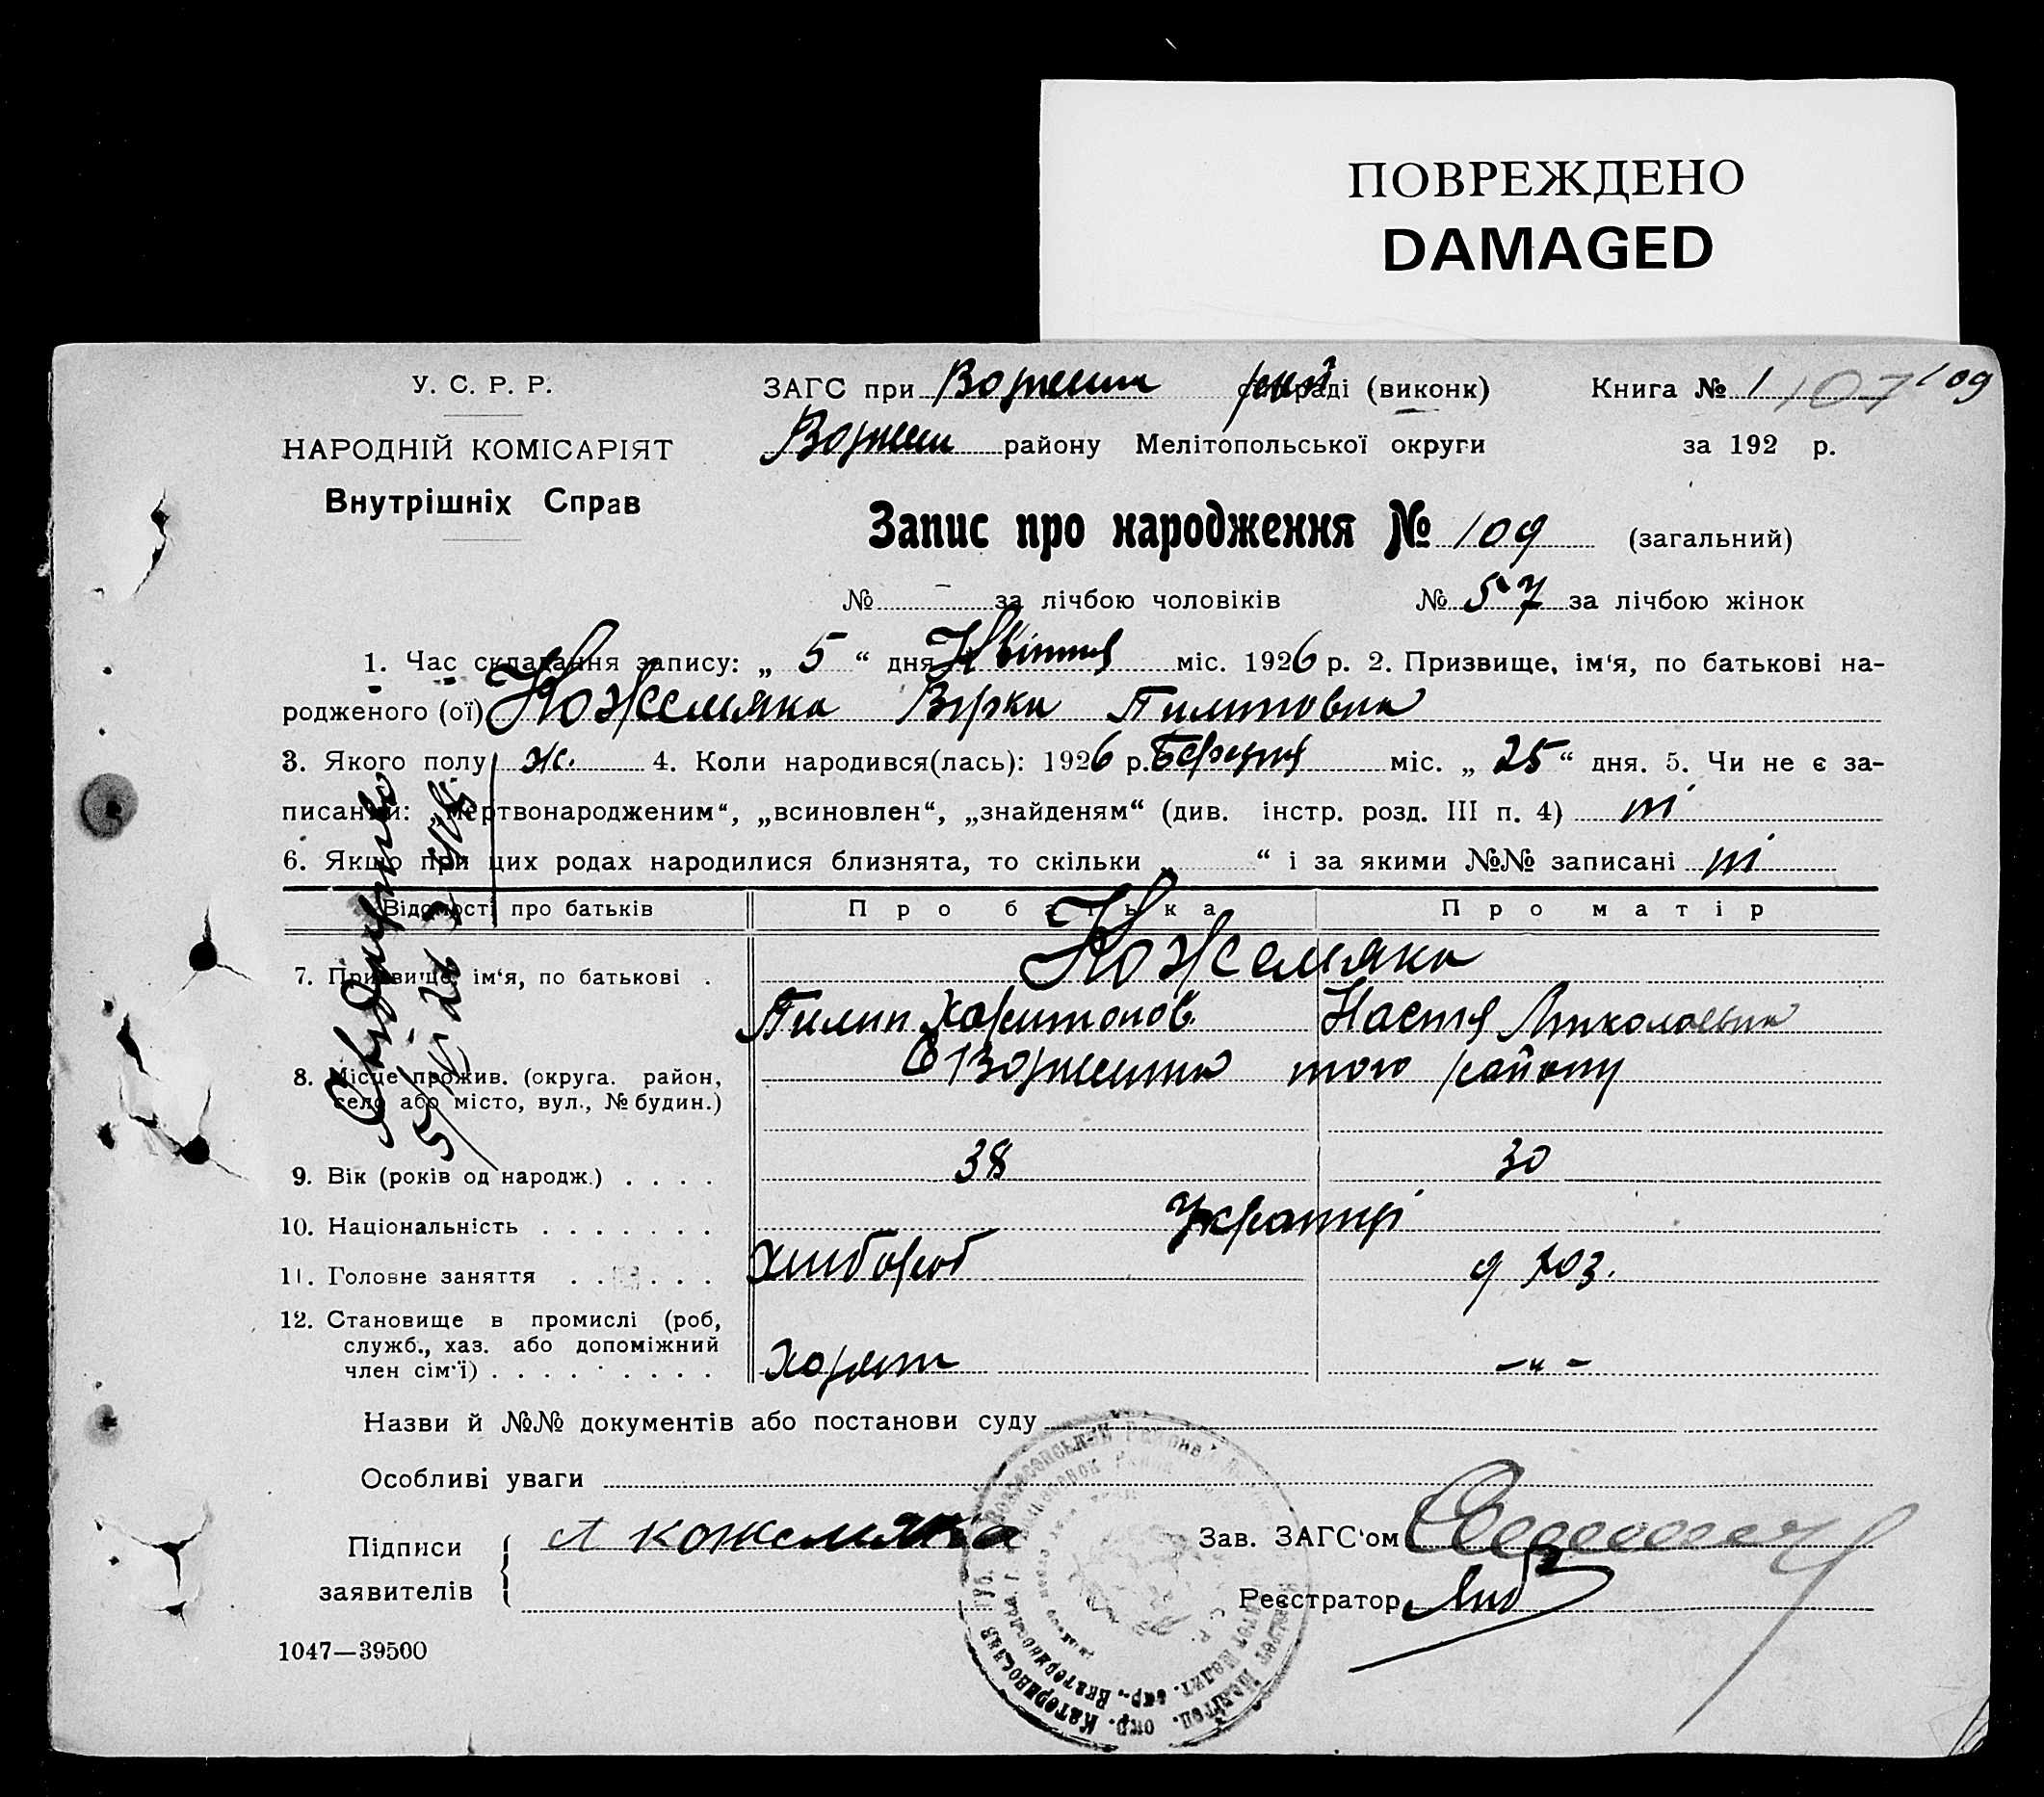 ПОВРЕЖДЕНО
DAMAGED
У. С. Р. Р.
ЗАГС при рай сельраді (виконк) Книга № 1 107 109
НАРОДНІЙ КОМІСАРІЯТ
району Мелітопольської округи за 192 р.
Внутрішніх Справ
Запис про народження № 109 (загальний)
№ – за лічбою чоловіків № 57 за лічбою жінок
1. Час складання запису: „ 5 “ дня Квітня міс. 1926 р. 2. Призвище, ім‘я, по батькові на-
родженого (ої) Кожемяка Вірка Пилиповна
3. Якого полу ж. 4. Коли народився(лась): 1926 р. Березня міс. „ 25 “ дня. 5. Чи не є за-
писаний: „мертвонародженим“, „всиновлен“, „знайденям“ (див. інстр. розд. III п. 4) ні
6. Якщо при цих родах народилися близнята, то скільки „ “ і за якими №№ записані ні
Відомості про батьків Про батька Про матір
Кожемяка
7. Призвище, ім‘я, по батькові .
Пилип Харитонов. Настя Миколаевна
8. Місце прожив. (округа. район, того району
село або місто, вул., № будин.)
9. Вік (років од народж.) . . . . 38 30
10. Національність . . . . . . . Українці
11. Головне заняття . . . . . . Хлібороб д хоз.
12. Становище в промислі (роб,
служб., хаз. або допоміжний
член сім‘ї) . . . . . . . . . –„–
Назви й №№ документів або постанови суду
Особливі уваги
Підписи
заявителів
Кожемяка
Зав. ЗАГС‘ом
Реєстратор
1047—39500